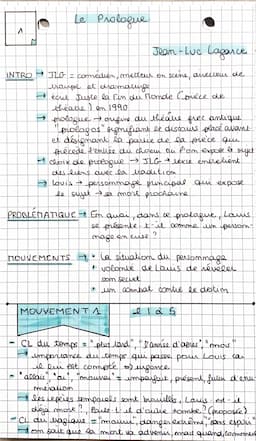 1
Le Prologue
Jean-Luc Lagarce
INTRO → JLG = comédien, metteur en scène, directeur de
troupe et dramaturge
→ écrit Juste la Fin du Monde (pièce de
théâtre) en 1990
→ prologue → origine du théâtre grec antique
"prologos" signifiant le discours placé avant
et désignant la partie de la pièce qui
précède l'entrée du chœur où l'on expose le sujet
→ choix de prologue → JLG → texte entretient
des liens avec la tradition
→ Louis → personnage principal qui expose
le sujet → sa mort prochaine
PROBLÉMATIQUE → En quoi, dans ce prologue, Louis
se présente-t-il comme un person-
nage en crise ?
MOUVEMENTS → • la situation du personnage
• volonté de Louis de révéler
son secret
• un combat contre le destin
MOUVEMENT 1 l 1 à 5
- CL du temps = "plus tard", "l'année d'après", "mois"
→ importance du temps qui passe pour Louis car
il lui est compté → urgence
- "allais", "ai", "mourrai" = imparfait, présent, futur d'énu-
mération
→ les repères temporels sont brouillés, Louis est-il
déjà mort ? Parle-t-il d'outre tombe ? (prosopopée)
- CL du tragique = "mourir, danger extrême, sans espoir"
→ on sait que la mort va advenir, mais quand, comment